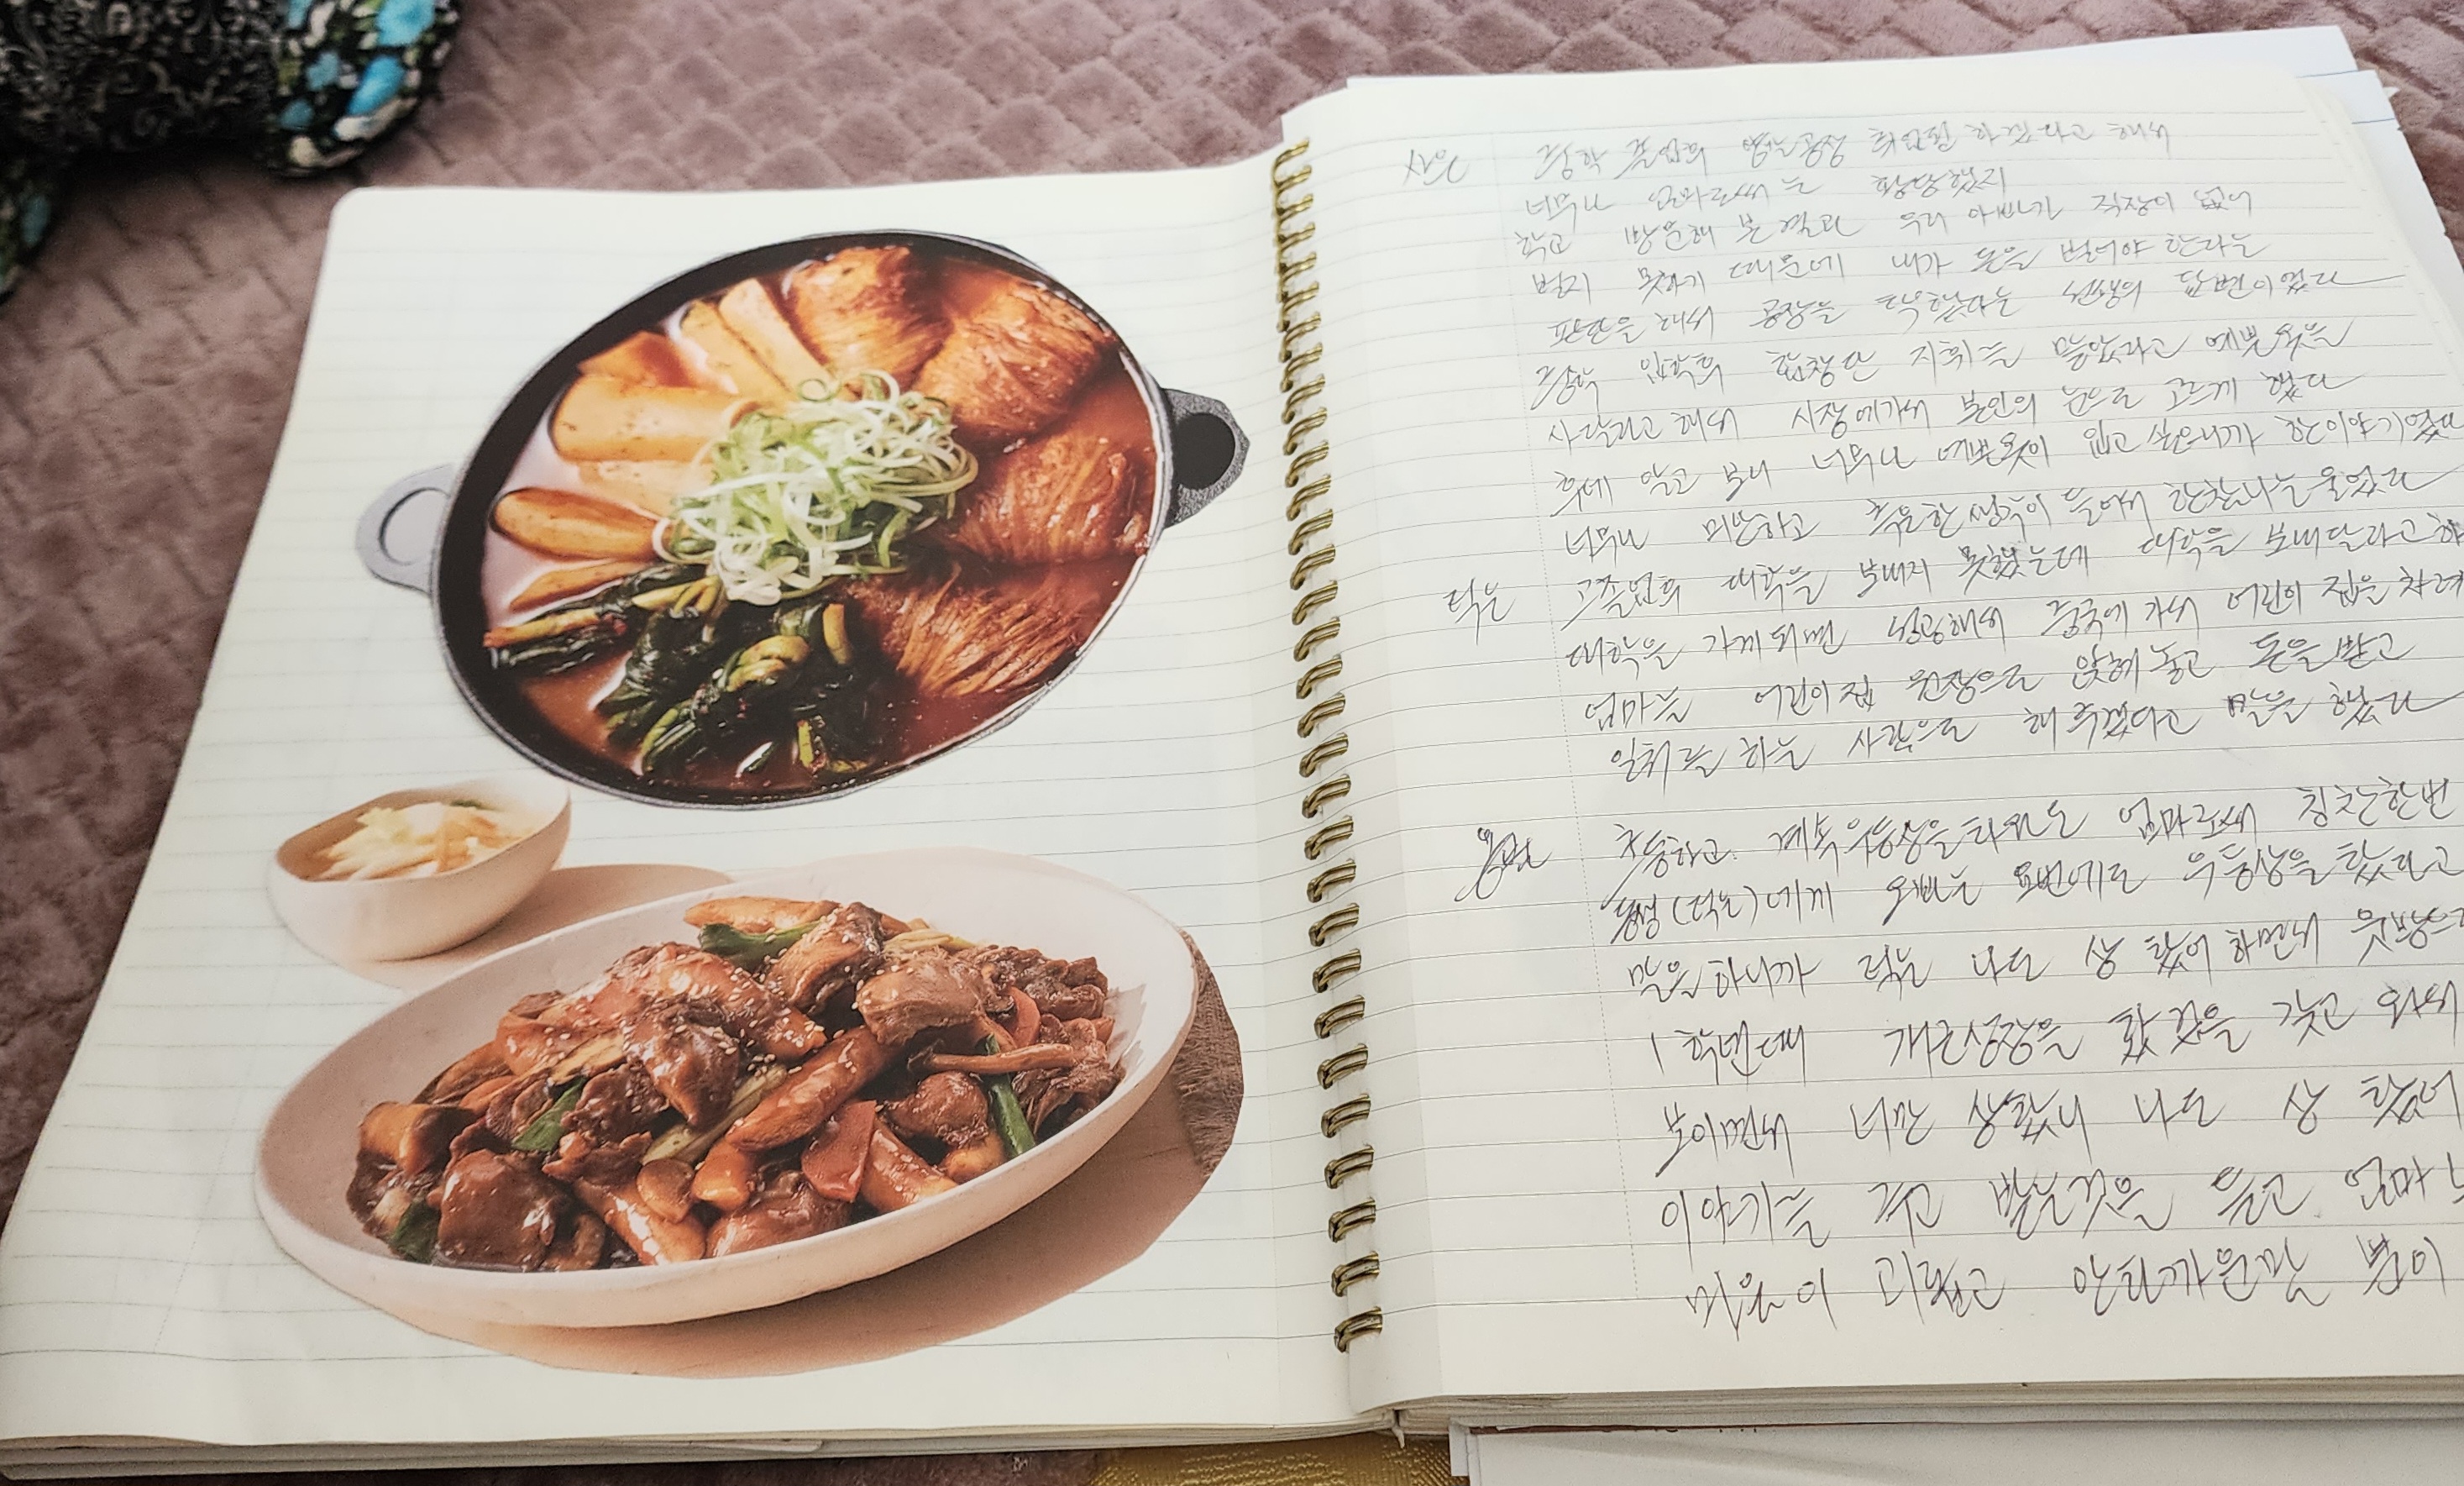 사은 중학 졸업후 공장 취업을 하겠다고 해서
너무나 엄마로써는 황당했지
학교 방문해 본 결과 우리 아빠가 직장이 없어
벌지 못하기 때문에 내가 돈을 벌어야 한다는
판단을 해서 공장을 택했다는 선생의 답변이였다
중학 입학후 합창단 지휘를 맡았다고 예쁜옷을
사달라고 해서 시장에가서 본인의 눈으로 고르게 했다
후에 알고 보니 너무나 예쁜옷이 입고 싶으니까 한이야기였다
너무나 미안하고 측은한생각이 들어서 한참나는울었다
덕은 고졸업후 대학을 보내지 못했는데 대학을 보내달라고
대학을 가게되면 성공해서 중국에가서 어린이 집을 차려
엄마는 어린이집 원장으로 앉혜놓고 돈을받고
일처리를 하는 사람으로 해주겠다고 말을 했다
초등학교 계속 우등상을타와도 엄마로써 칭찬한번
동생(덕은)에게 오빠는 요번에도 우등상을탔다고
말을하니까 덕은 나도 상 탔어하면서 윗방으로
1학년때 개근상장을 탔것을 갖고 와서
보이면서 너만 상탔니 나도 상 탔어
이야기를 주고 받는것을 듣고 엄마
마음이 괴롭고 안타까운말 뿐이